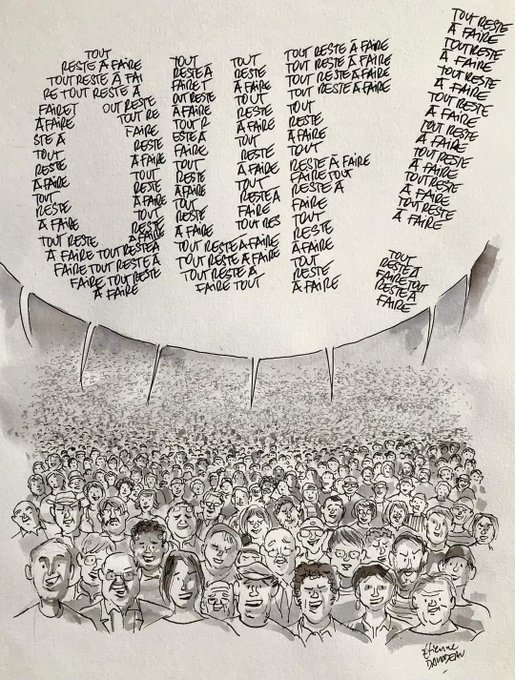 TOUT
RESTE À FAIRE
TOUT RESTE À FAI
RE TOUT RESTE À
FAIRE T
OUT RESTE
À FAIRE
TOUT RE
STE À
FAIRE
TOUT
RESTE
RESTE
À FAIRE
À FAIRE
TOUT
TOUT
RESTE
RESTE
À FAIRE
À FAIRE
TOUT
RESTE
TOUT RESTE
À FAIRE
À FAIRE TOUT RESTE À
FAIRE TOUT RESTE À
FAIRE TOUT RESTE
À FAIRE
TOUT
RESTE À
FAIRE T
OUT RESTE
À FAIRE
TOUT R
ESTE À
FAIRE
TOUT
RESTE
À FAIRE
TOUT
RESTE
À FAIRE
TOUT
RESTE
À FAIRE
TOUT
RESTE
À FAIRE
TOUT
RESTE
À FAIRE
TOUT
RESTE À
FAIRE
TOUT RES
TOUT RESTE À FAIRE
TOUT RESTE À FAIRE
TOUT RESTE À
FAIRE TOUT
TOUT RESTE À FAIRE
TOUT RESTE À FAIRE
TOUT RESTE À FAIRE
TOUT RESTE À FAIRE
TOUT
RESTE
À FAIRE
TOUT
RESTE À FAIRE
FAIRE TOUT
RESTE À
FAIRE
TOUT
RESTE
À FAIRE
TOUT
RESTE
À FAIRE
TOUT RESTE
À FAIRE
TOUT RESTE
À FAIRE
TOUT RESTE
À FAIRE
TOUT RESTE
À FAIRE
TOUT RESTE
À FAIRE
TOUT RESTE
À FAIRE
TOUT RESTE
À FAIRE
TOUT RESTE
À FAIRE
TOUT
RESTE À
FAIRE TOUT
RESTE À
FAIRE
Étienne
DAVODEAU